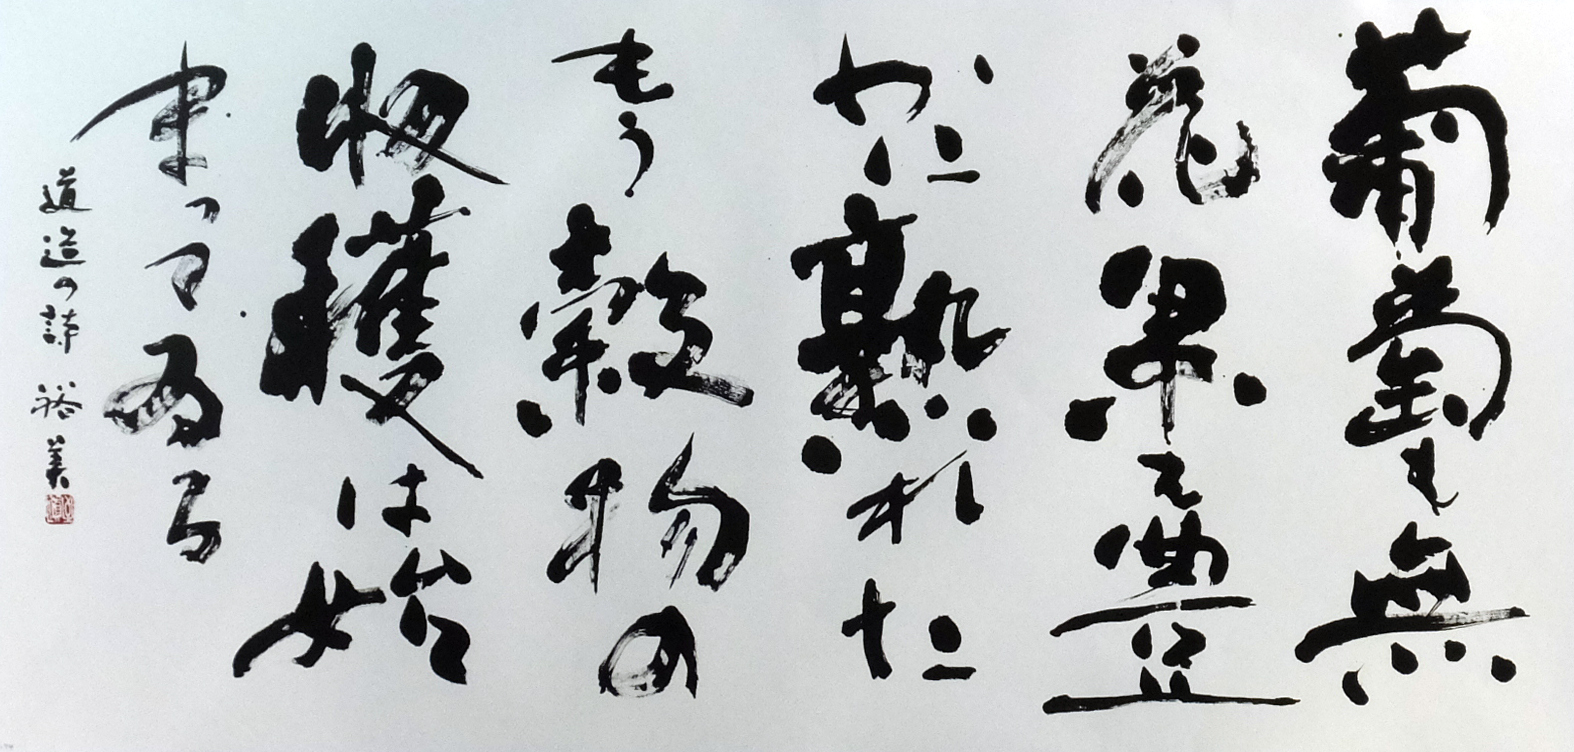 葡萄も無
花果も豊
かに熟れた
もう穀物の
収穫は始
まってゐる
道造の詩 裕美